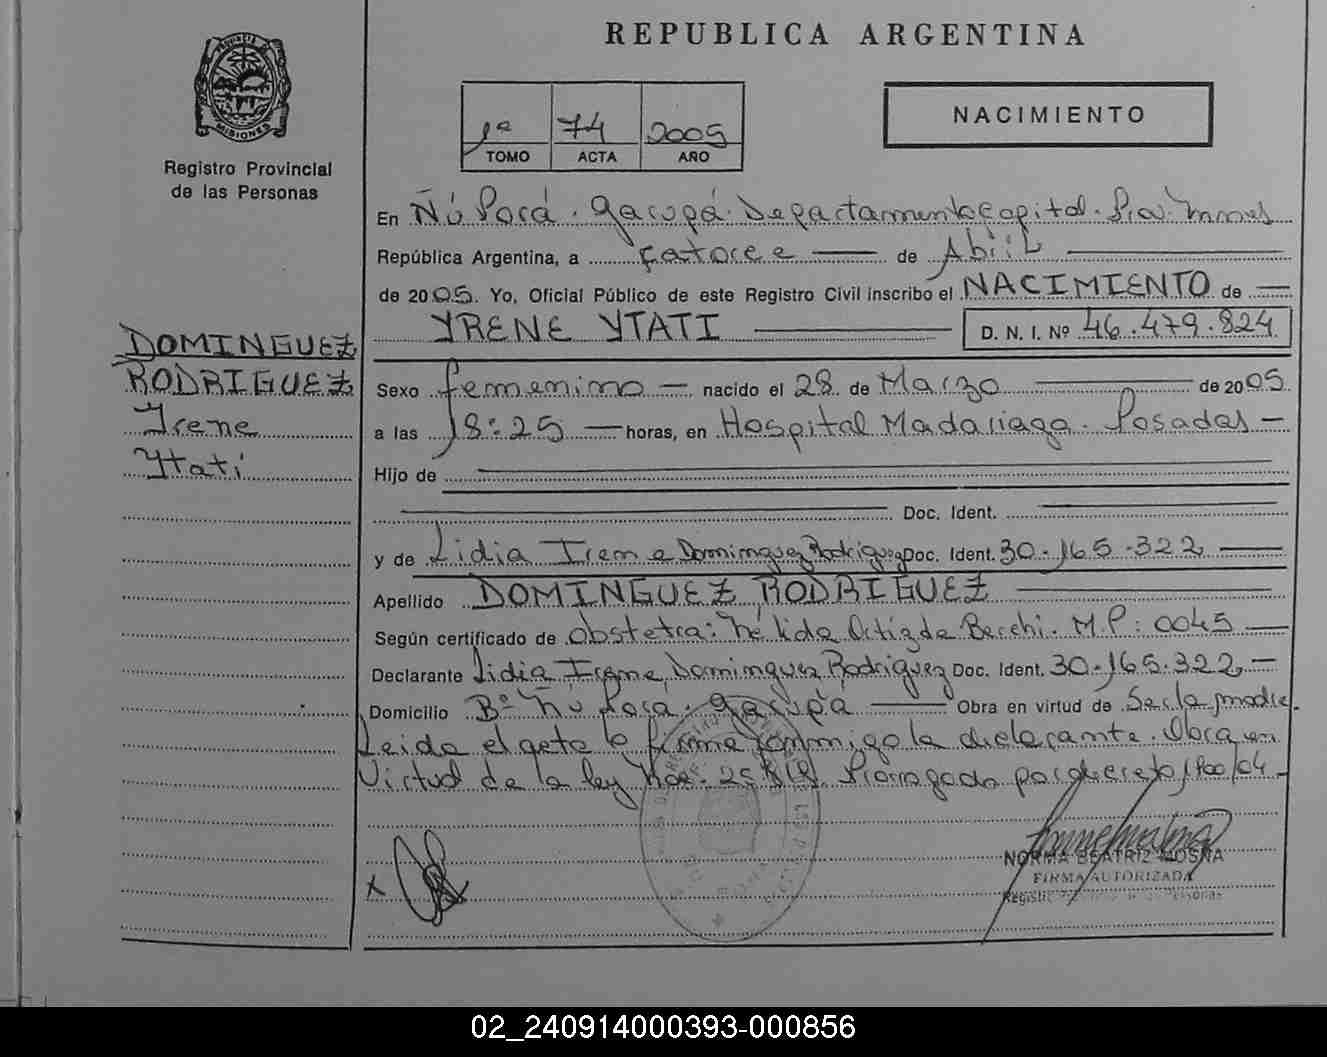 REPUBLICA ARGENTINA
NACIMIENTO
1º 74 2005
TOMO ACTA AÑO
MISIONES
Registro Provincial
de las Personas
En Ñú Porá. Garupá. Departamento Capital. Prov. Mnes
República Argentina, a catorce de Abril
de 2005. Yo, Oficial Público de este Registro Civil inscribo el NACIMIENTO de
YRENE YTATI D. N. I. Nº 46.479.824
DOMINGUEZ
RODRIGUEZ
Yrene
Ytatí
Sexo femenino nacido el 28 de Marzo de 2005
a las 18:25 horas, en Hospital Madariaga. Posadas
Hijo de
Doc. Ident.
y de Lidia Irene Dominguez Rodriguez Doc. Ident. 30.165.322
Apellido DOMINGUEZ RODRIGUEZ
Según certificado de obstetra: Nélida Ortiz de Becchi. M.P: 0045
Declarante Lidia Irene Dominguez Rodriguez Doc. Ident. 30.165.322
Domicilio Bº Ñu Pora. Garupá Obra en virtud de Ser la madre.
Leida el acta la firma conmigo la declarante. Obra en
Virtud de la ley Nac. 25.819 Prorrogado por decreto 1900/04
X
NORMA BEATRIZ MOSNA
FIRMA AUTORIZADA
Registro Provincial de las Personas
02_240914000393-000856